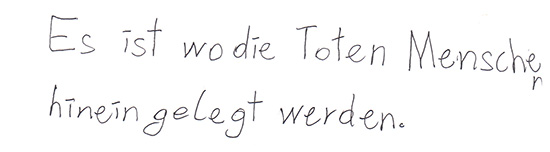 Es ist wo die Toten Menschen
hinein gelegt werden.